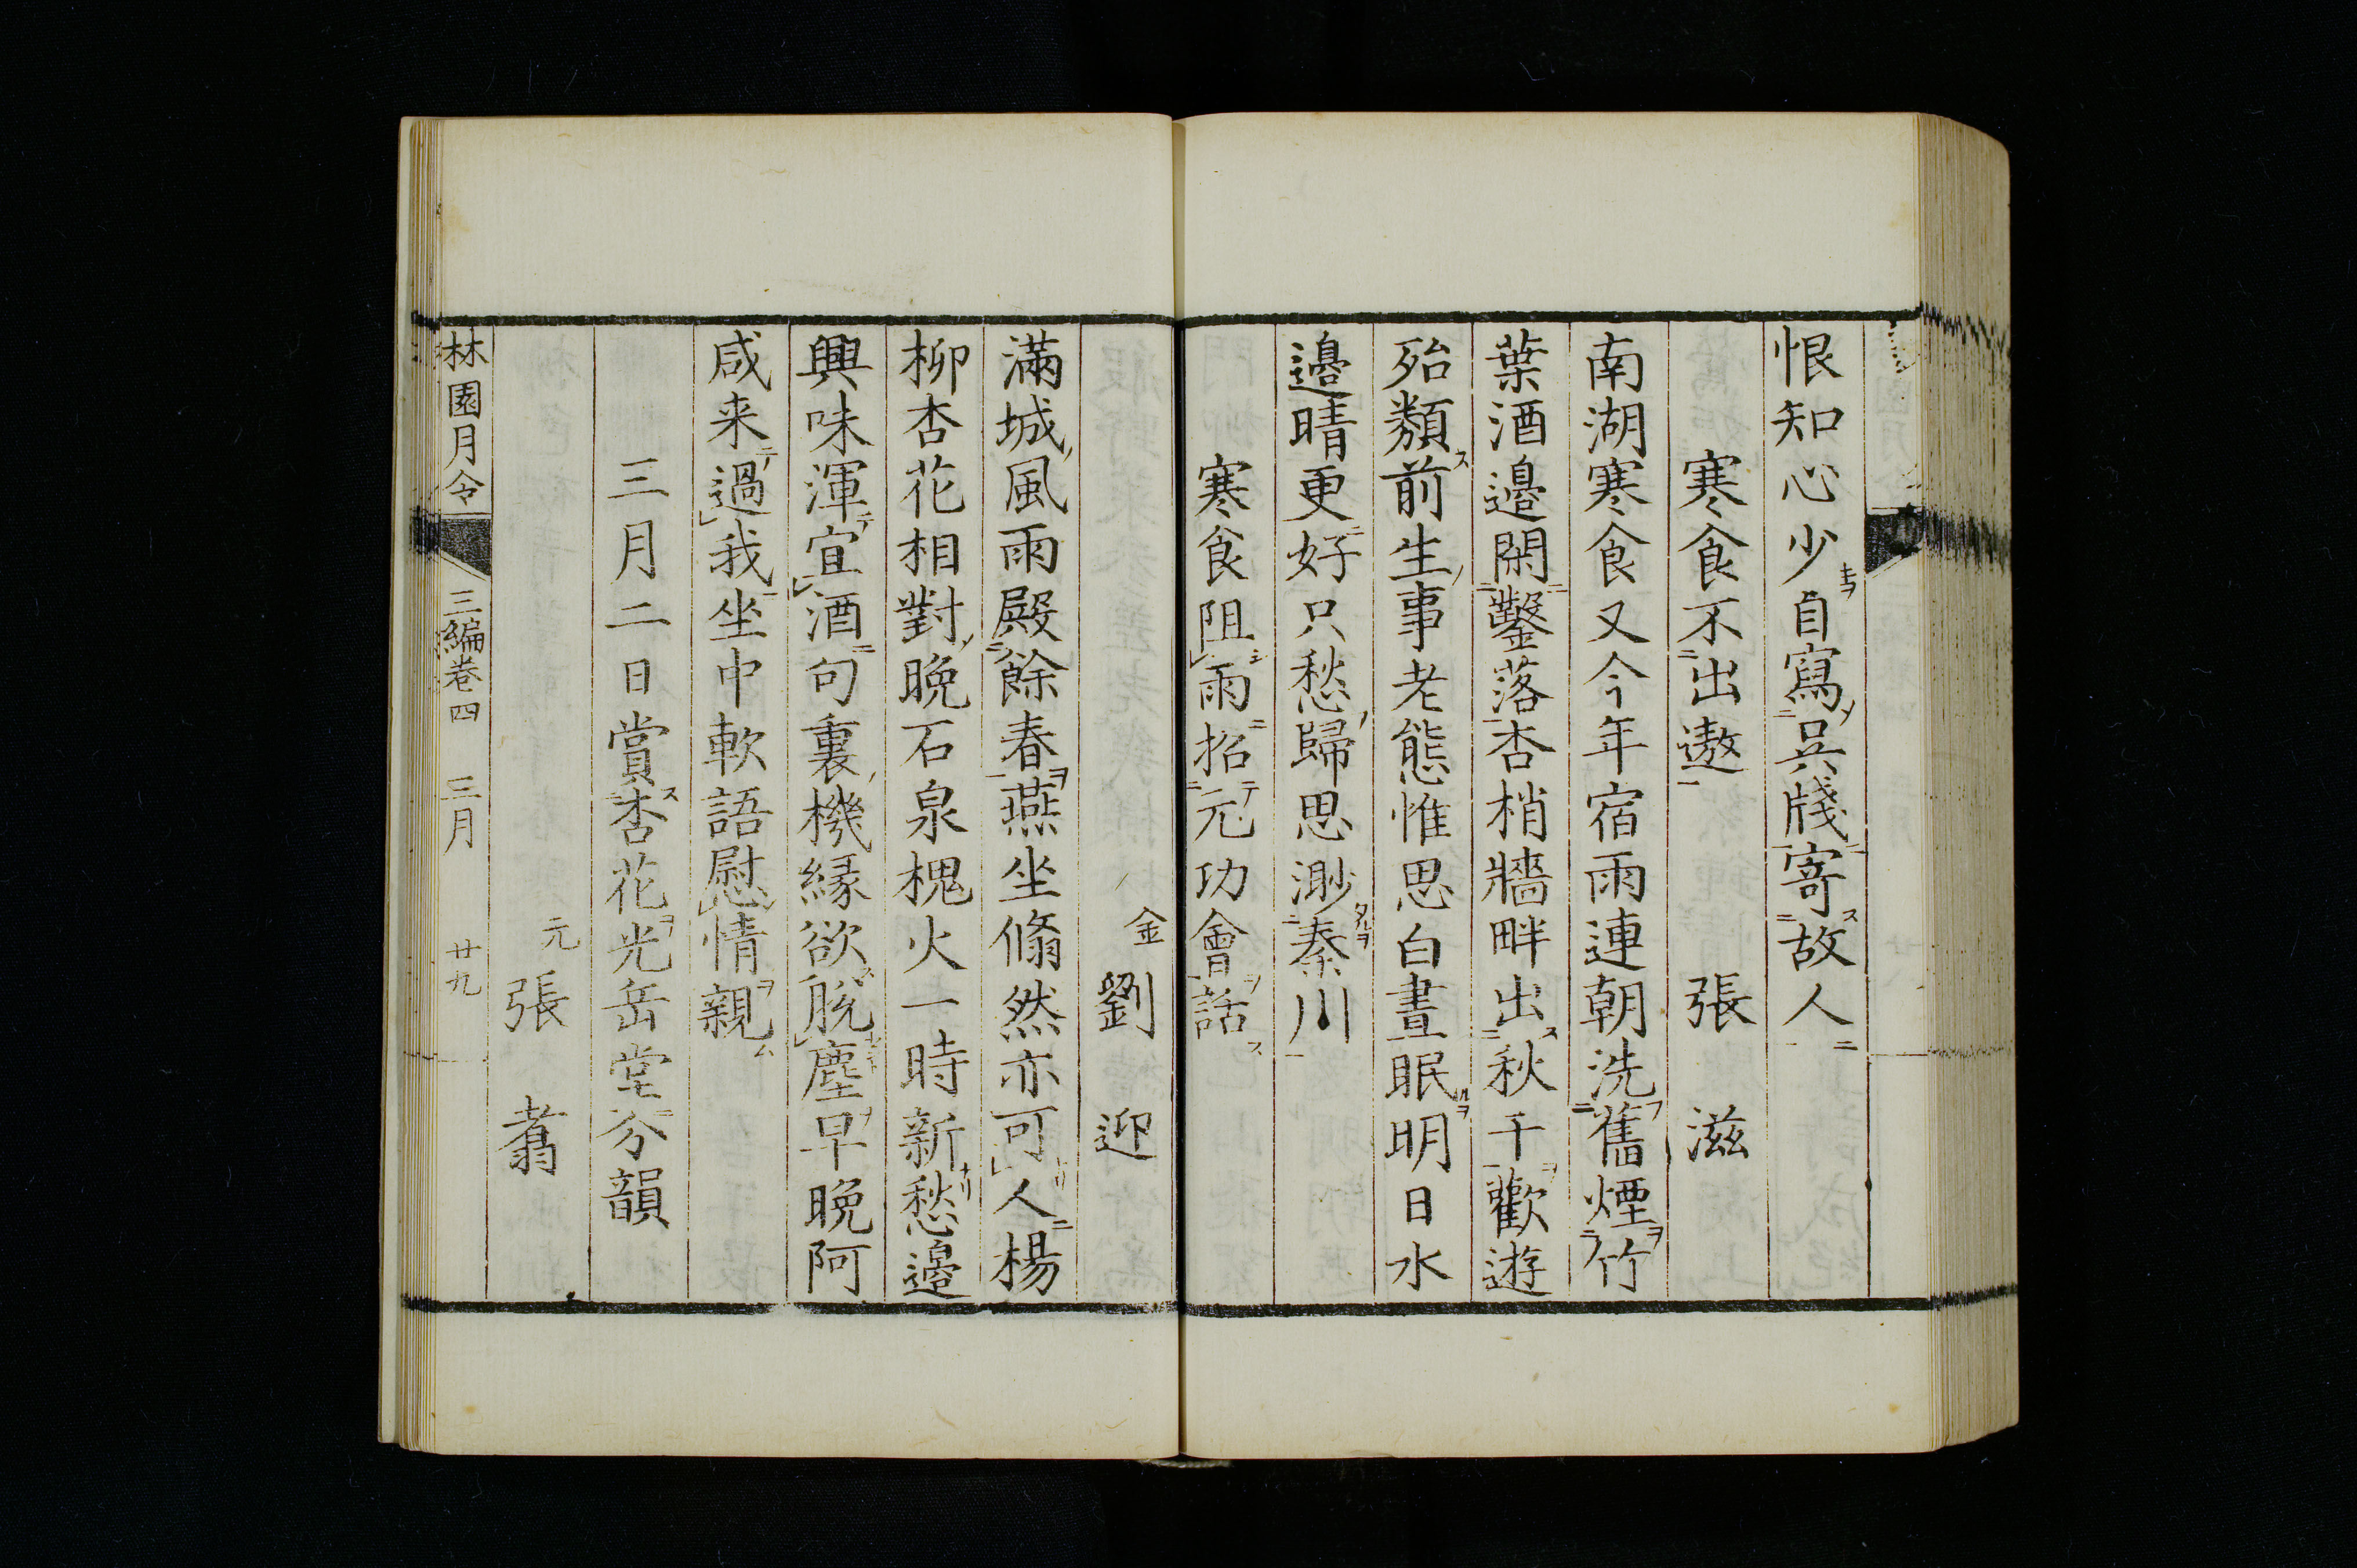 恨知心少自寫呉牋寄故人
寒食不出遨　張滋
南湖寒食又今年宿雨連朝洗舊煙竹
葉酒邉閑鑿落杏梢牆畔出秋千歡遊
殆類前生事老態惟思白晝眠明日水
邉晴更好只愁歸思渺秦川
寒食阻雨招元功會話
金劉迎
滿城風雨殿餘春燕坐翛然亦可人楊
柳杏花相對晩石泉槐火一時新愁邉
興味渾宜酒句裏機縁欲脱塵早晩阿
咸来過我坐中軟語慰情親
三月二日賞杏花光岳堂分韻
元張翥
林園月令　三編巻四　三月　廿九